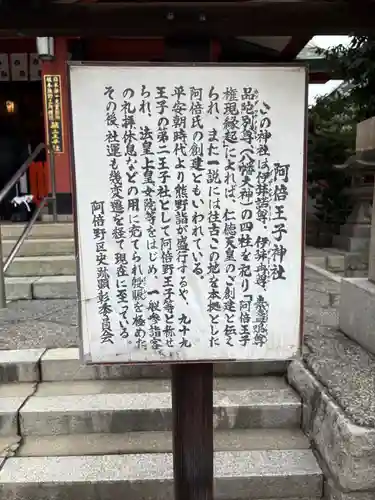 阿倍王子神社
この神社は、伊弉諾尊、伊弉冉尊、素戔嗚尊
品陀別尊（八幡大神）の四柱を祀り「阿倍王子
権現縁起」によれば、仁徳天皇のご創建と伝え
られ、また一説には往古この地を本拠とした
阿倍氏の創建ともいわれている。
平安朝時代より熊野詣が盛行するや、九十九
王子の第二王子社として阿倍野王子等と称せ
られ、法皇上皇女院等をはじめ、一般参詣客
の礼拝休息などの用に充てられ殷賑を極めた。
その後、社運も幾変遷を経て現在に至っている
阿倍野区史跡顕彰委員会